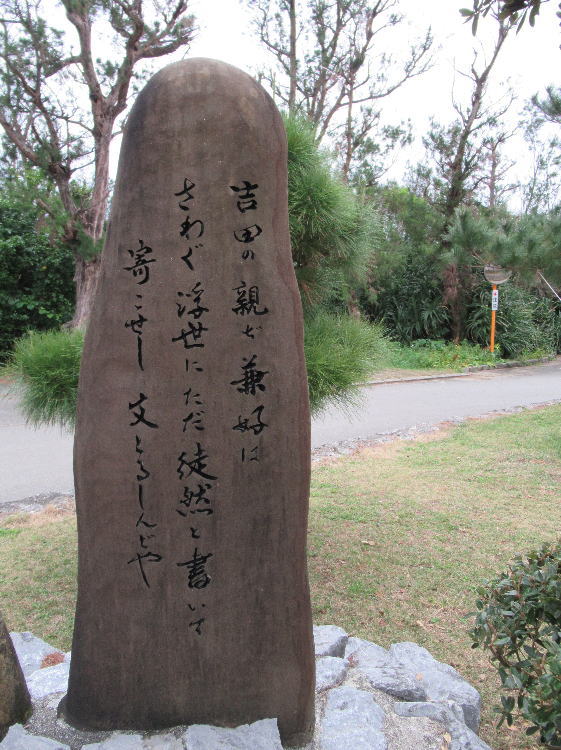 吉田の親ぢ兼好は
さわぐ浮世にただ徒然と書いて
寄こせし文とるしんどや